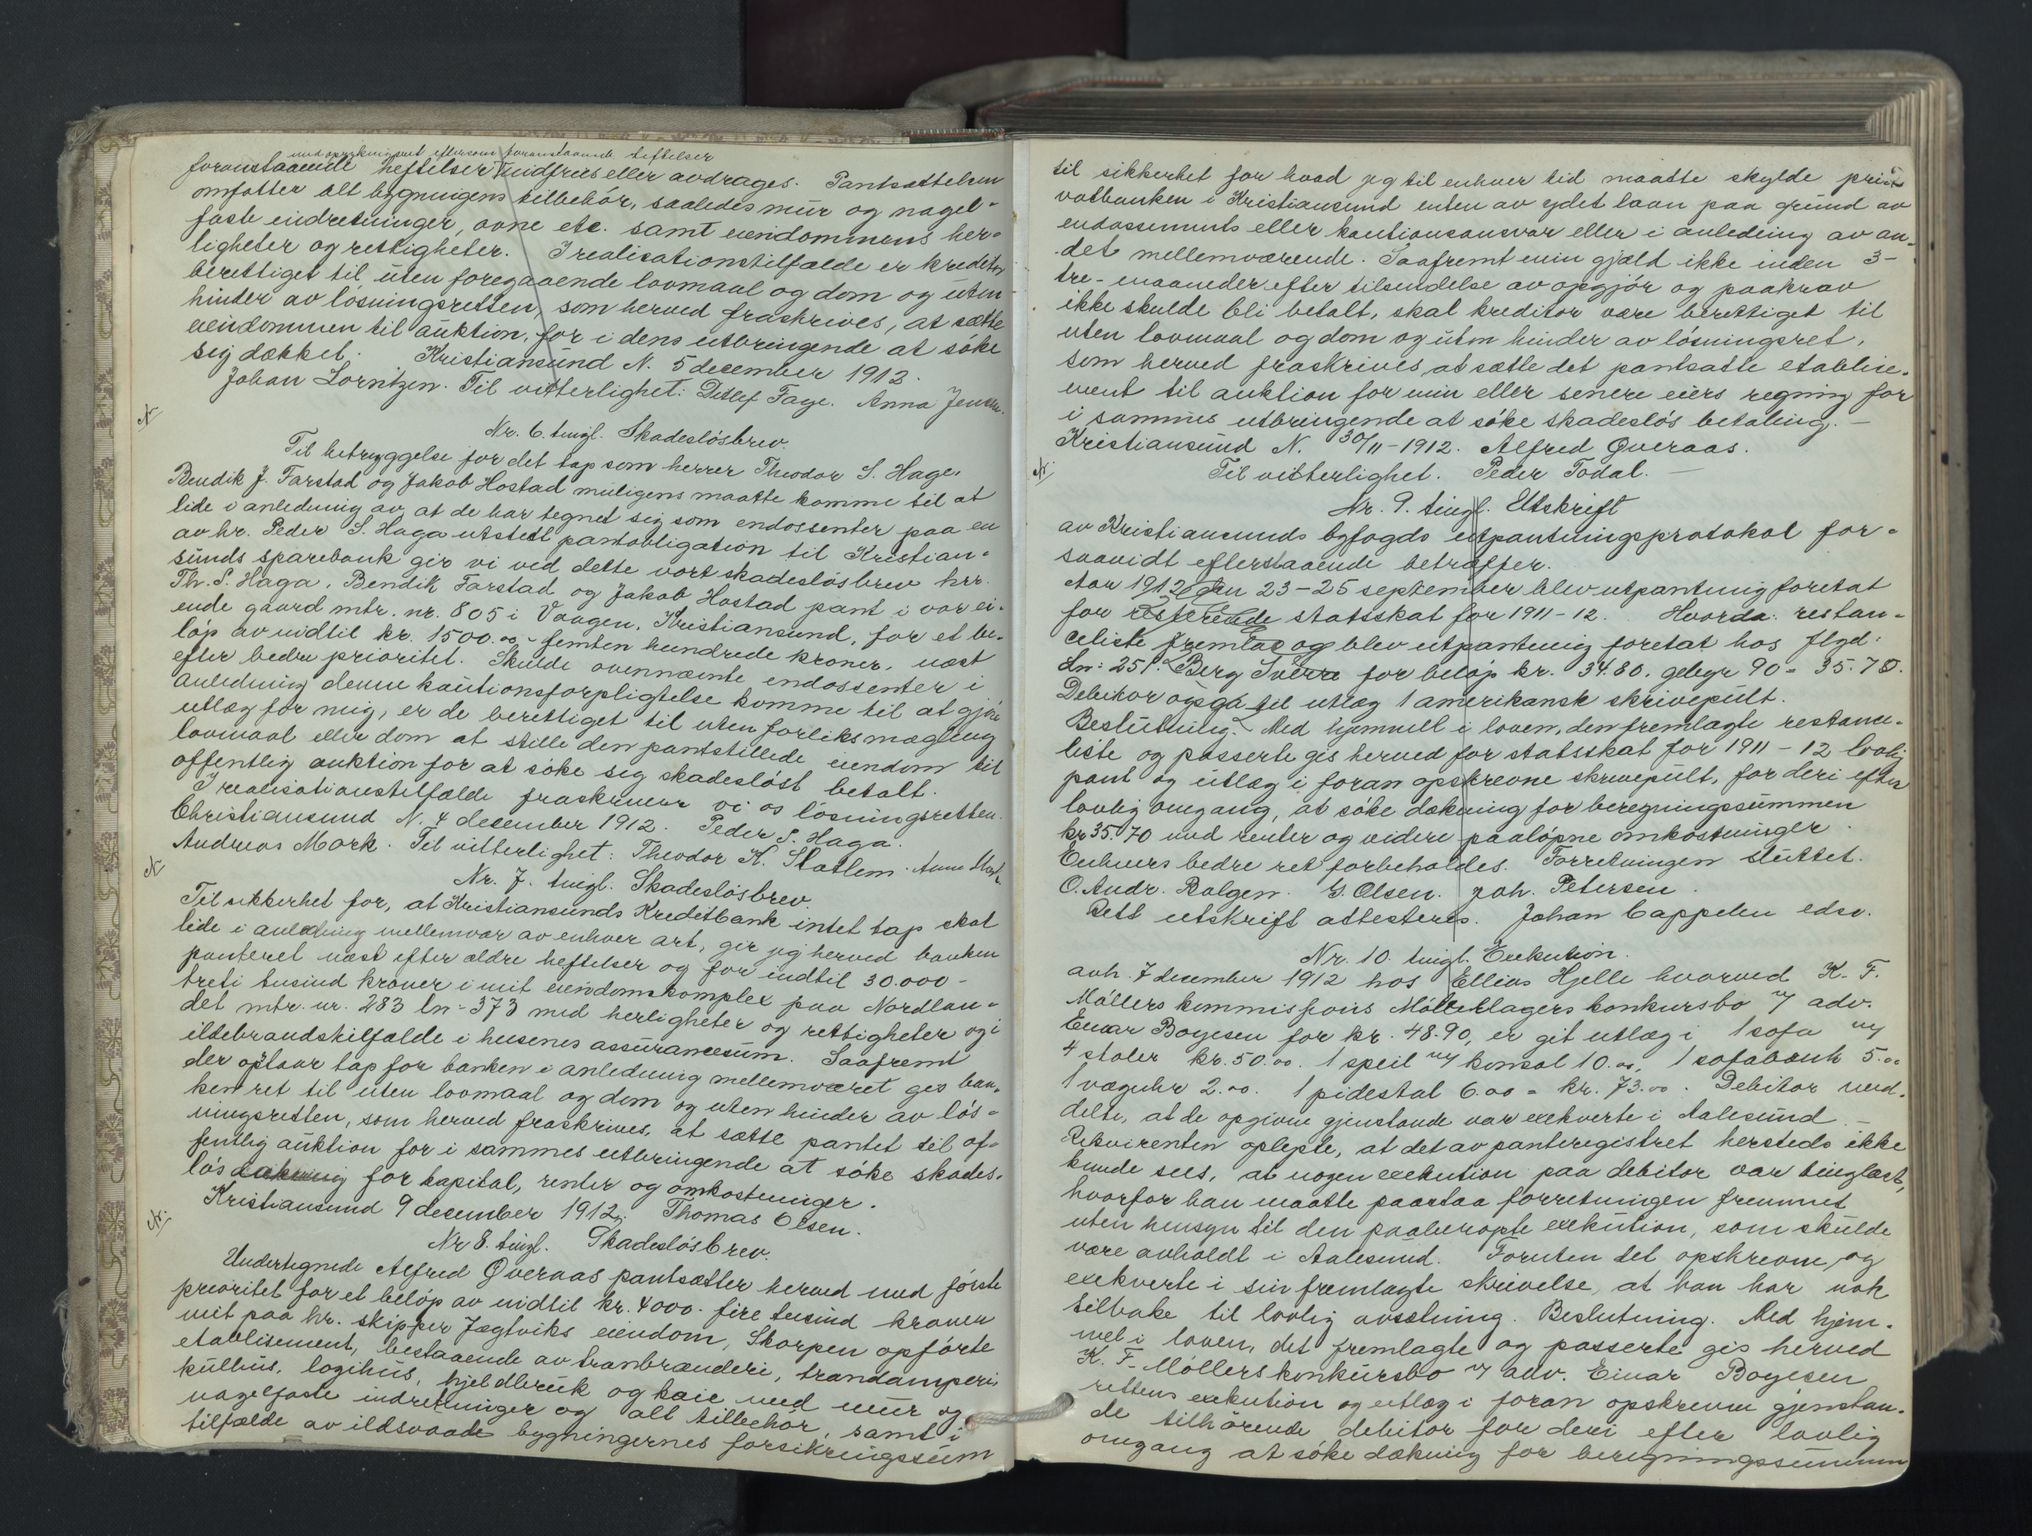 med oprykningsret eftersom foranstaaende heftelser
foranstaaende heftelser indfries eller avdrages. Pantsættelsen
omfatter alt bygningens tilbehör, saaledes mur og nagel-
faste indretninger, ovne etc. samt eiendommens her-
ligheter og rettigheter. I realisationstilfælde er kreditor
berettiget til uten foregaaende lovmaal og dom og uten
hinder av lösningsretten, som herved fraskrives, at sætte
eiendommen til auktion, for i dens utbringende at söke
sig dækket. Kristiansund N. 5 december 1912.
Johan Lornitzen. Til vitterlighet: Detlef Faye. Anna Jensen.
N
Nr. 6. tingl. Skadeslösbrev
Til betryggelse for det tap som herrer Theodor S. Haga,
Bendik J. Farstad og Jakob Hostad muligens maatte komme til at
lide i anledning av at de har tegnet sig som endossenter paa en
av hr. Peder S. Haga utstedt pantobligation til Kristian-
sunds sparebank gir vi ved dette vort skadeslösbrev hrr.
Th. S. Haga, Bendik Farstad og Jakob Hostad pant i vor ei-
ende gaard mtr. nr. 805 i Vaagen, Kristiansund, for et be-
löp av indtil kr. 1500.00 - femten hundrede kroner, næst
efter bedre prioritet. Skulde ovennævnte endossenter i
anledning denne kautionsforpligtelse komme til at gjöre
utlæg for mig, er de berettiget til uten forliksmægling
lovmaal eller dom at stille den pantstillede eiendom til
offentlig auktion for at söke sig skadeslöst betalt.
I realisationstilfælde fraskriver vi os lösningsretten.
Christiansund N. 4 december 1912. Peder S. Haga.
Andreas Mork. Til vitterlighet: Theodor K. Statlem. Anna Mork
N
Nr. 7. tingl. Skadeslösbrev.
Til sikkerhet for, at Kristiansunds Kreditbank intet tap skal
lide i anledning mellemvær av enhver art, gir jeg herved banken
panteret næst efter ældre heftelser og for indtil 30.000 -
treti tusind kroner i mit eiendomskomplex paa Nordlan-
det mtr. nr. 283 ln- 373 med herligheter og rettigheter og i
ildebrandstilfælde i husenes assurancesum. Saafremt
der opstaar tap for banken i anledning mellemværet gis ban-
ken ret til uten lovmaal og dom og uten hinder av lös-
ningsretten, som herved fraskrives, at sætte pantet til of-
fentlig auktion for i sammes utbringende at söke skades-
lös dækning for kapital, renter og omkostninger.
Kristiansund 9 december 1912. Thomas Olsen.
N.
Nr 8. tingl. Skadeslösbrev.
Undertegnede Alfred Överaas pantsætter herved med förste
prioritet for et belöp av indtil kr. 4000. fire tusind kroner
mit paa hr. skipper Jægtviks eiendom, Skorpen opförte
etablisement, bestaaende av tranbrænderi, trandamperi,
kulhus, logihus, hjeldbruk og kaie med mur og
nagelfaste indretninger og alt tilbehör, samt i
tilfælde av ildsvaade bygningernes forsikringssum
til sikkerhet for hvad jeg til enhver tid maatte skylde pri-
vatbanken i Kristiansund enten av ydet laan paa grund av
endossements eller kautionsansvar eller i anledning av an-
det mellemværende. Saafremt min gjæld ikke inden 3-
tre- maaneder efter tilsendelse av opgjör og paakrav
ikke skulde bli betalt, skal kreditor være berettiget til
uten lovmaal og dom og uten hinder av lösningsret,
som herved fraskrives, at sætte det pantsatte etablise-
ment til auktion for min eller senere eiers regning for
i sammes utbringende at söke skadeslös betaling. -
Kristiansund N. 30/11-1912. Alfred Överaas.
Til vitterlighet. Peder Todal. -
N.
Nr. 9. tingl. Utskrift
av Kristiansunds byfogds utpantningsprotokol for-
saavidt efterstaaende betræffer.
Aar 1912 den 23-25 september blev utpantning foretat
for resterende statsskat for 1911-12. Hvorda: restan-
celiste fremlag og blev utpantning foretat hos flgd:
Ln: 251. Berg Sverre for belöp kr. 34.80. gebyr 90 = 35.70.
Debitor opgå til utlæg 1 amerikansk skrivepult.
Beslutning. Med hjemmel i loven, den fremlagte restance-
liste og passerte gis herved for statsskat for 1911-12 lovlig
pant og utlæg i foran opskrevne skrivepult, for deri efter
lovlig omgang, at söke dækning for beregningssummen
kr. 35.70 med renter og videre paalöpne omkostninger.
Enhvers bedre ret forbeholdes. Forretningen sluttet.
O. Andr. Bolgen. G. Olsen. Joh. Petersen.
Rett utskrift attesteres. Johan Cappelen edsv.
Nr. 10. tingl. Exekution.
avh. 7 december 1912 hos Ellius Hjelle hvorved K. F.
Möllers kommisjons Möbellagers konkursbo v/ adv.
Einar Boyesen for kr. 48.90, er git utlæg i 1 sofa m/
4 stoler kr. 50.00. 1 speil m/ konsol 10.00, 1 sofabænk 5.00
1 væguhr 2.00. 1 pidestal 6.00 = kr. 73.00. Debitor med-
delte, at de opgivne gjenstande var exekverte i Aalesund. -
Rekvirenten oplyste, at det av panteregistret hersteds ikke
kunde sees, at nogen exekution paa debitor var tinglæst,
hvorfor han maatte paastaa forretningen fremmet
uten hensyn til den paaberopte exekution, som skulde
være avholdt i Aalesund. Foruten det opskrevne, og
exekverte i sin fremlagte skrivelse, at han har nok
tilbake til lovlig avsetning. Beslutning. Med hjem-
mel i loven, det fremlagte og passerte gis herved
K. F. Möllers konkursbo v/ adv. Einar Boyesen
rettens exekution og utlæg i foran opskrevne gjenstan-
de tilhörende debitor for deri efter lovlig
omgang at söke dækning for beregningssummen